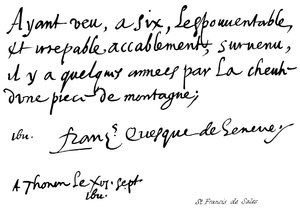 Ayant veu, a six, Lespouuentable,
et irrepable accablement, survenu,
il y a quelques annees par La cheute
dune piece de montagne;
ibu. franç.s Euesque de Geneue
A Thonon Le XVI. sept
ibu.
St Francis de Sales